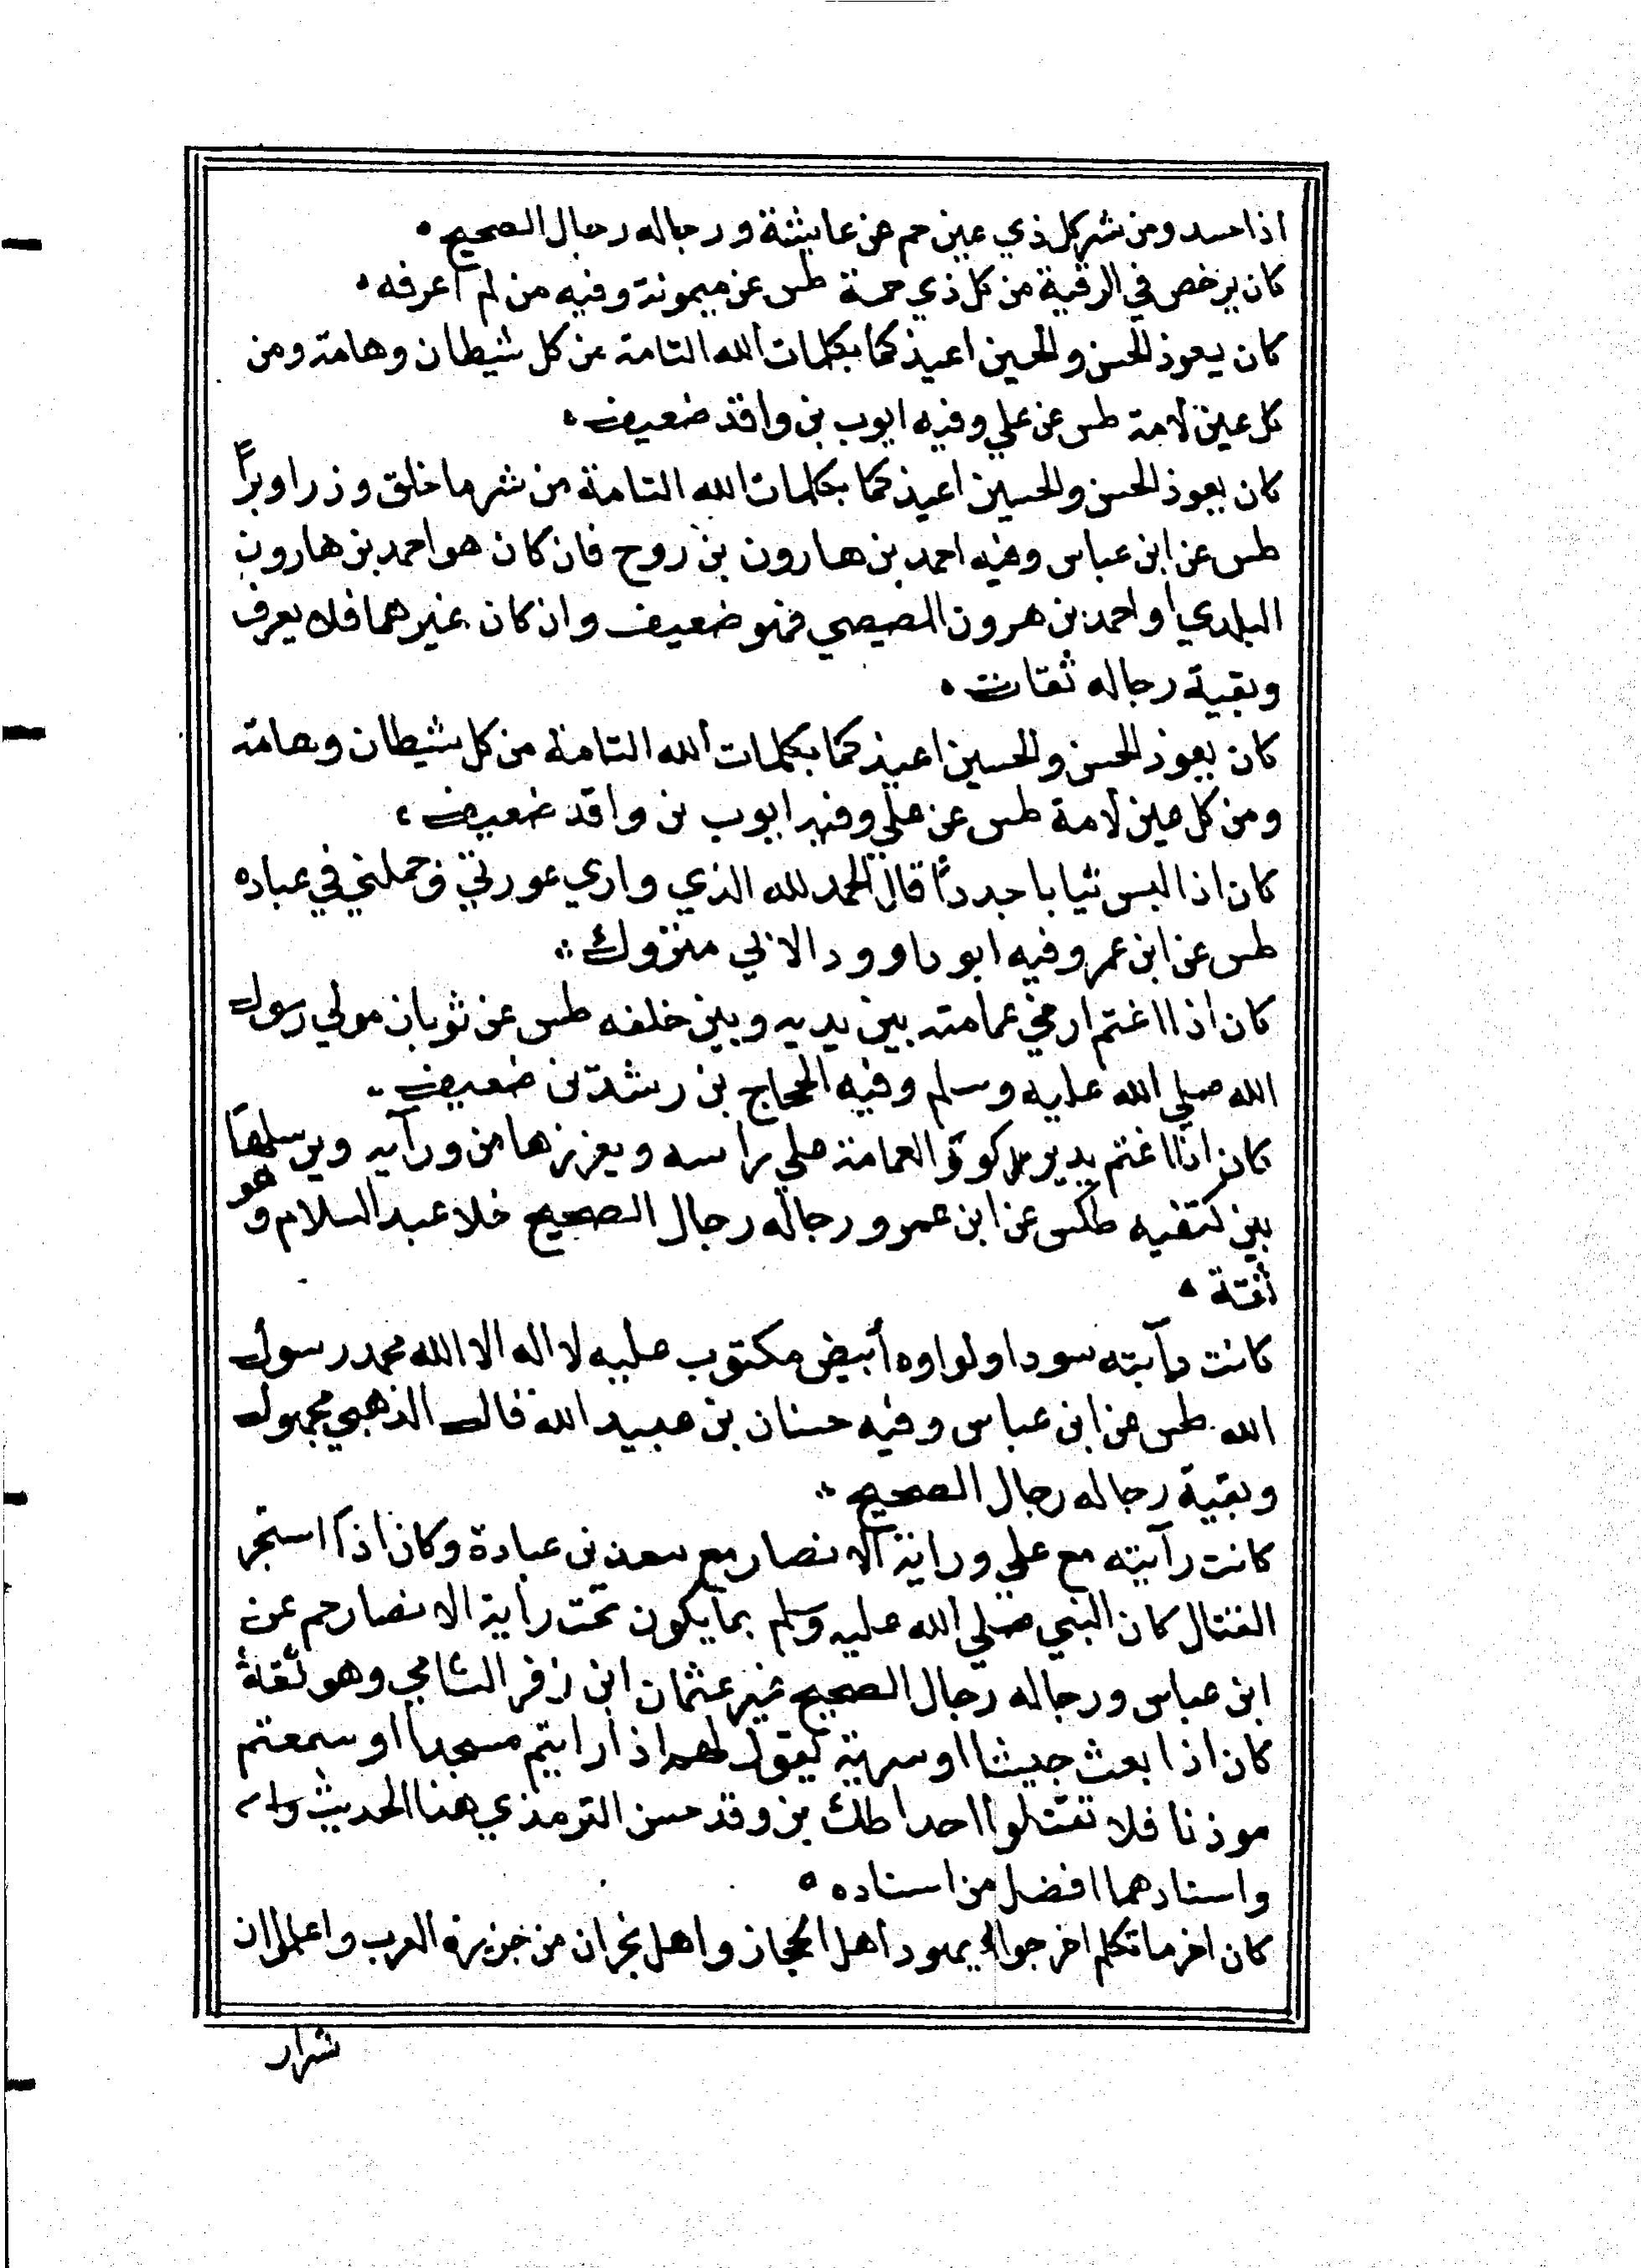 اذا حسد ومن شر كل ذي عين حم عن عايشة ورجاله رجال الصحيح
كان يرخص في الرقية من كل ذي حمة طس عن ميمونة وفيه من لم اعرفه
كان يعوذ الحسن والحسين اعيذكما بكلمات الله التامة من كل شيطان وهامة ومن
كل عين لامة طس عن علي وفيه ايوب بن واقد ضعيف
كان يعوذ الحسن والحسين اعيذكما بكلمات الله التامة من شر ما خلق وذرا وبرأ
طس عن ابن عباس وفيه احمد بن هارون بن روح فان كان هو احمد بن هارون
البلدي او احمد بن هرون المصيصي فهو ضعيف وان كان غيرهما فلا يعرف
وبقية رجاله ثقات
كان يعوذ الحسن والحسين اعيذكما بكلمات الله التامة من كل شيطان وهامة
ومن كل عين لامة طس عن علي وفيه ايوب بن واقد ضعيف
كان اذا لبس ثيابا جددا قال الحمد لله الذي واري عورتي وجملني في عباده
طس عن ابن عمر وفيه ابو داوود الازلي متروك
كان اذا اغتم ارخي عمامته بين يديه وبين خلفه طس عن ثوبان مولي رسول
الله صلي الله عليه وسلم وفيه الحجاج بن رشدين ضعيف
كان اذا اغتم يدير كور العمامة علي راسه ويغرزها من ورآيه ويرسلها
بين كتفيه طكس عن ابن عمر ورجاله رجال الصحيح خلا عبد السلام وهو
ثقة
كانت رآيته سودا ولواوه أبيض مكتوب عليه لا اله الا الله محمد رسول
الله طس عن ابن عباس وفيه حسنان بن عبيد الله قال الذهبي مجهول
وبقية رجاله رجال الصحيح
كانت رآيته مع علي وراية الانصار مع سعد بن عبادة وكان اذا استجر
القتال كان النبي صلي الله عليه وسلم بما يكون تحت راية الانصار حم عن
ابن عباس ورجاله رجال الصحيح غير عثمان ابن زفر الشامي وهو ثقة
كان اذا بعث جيشا او سرية يقول لهم اذا رايتم مسجدا او سمعتم
موذنا فلا تقتلوا احدا طك بز وقد حسن الترمذي هذا الحديث
واسنادهما افضل من اسناده
كان اخر ما تكلم اخرجوا يهود اهل الحجاز واهل نجران من جزيرة العرب واعلموا ان
شرار